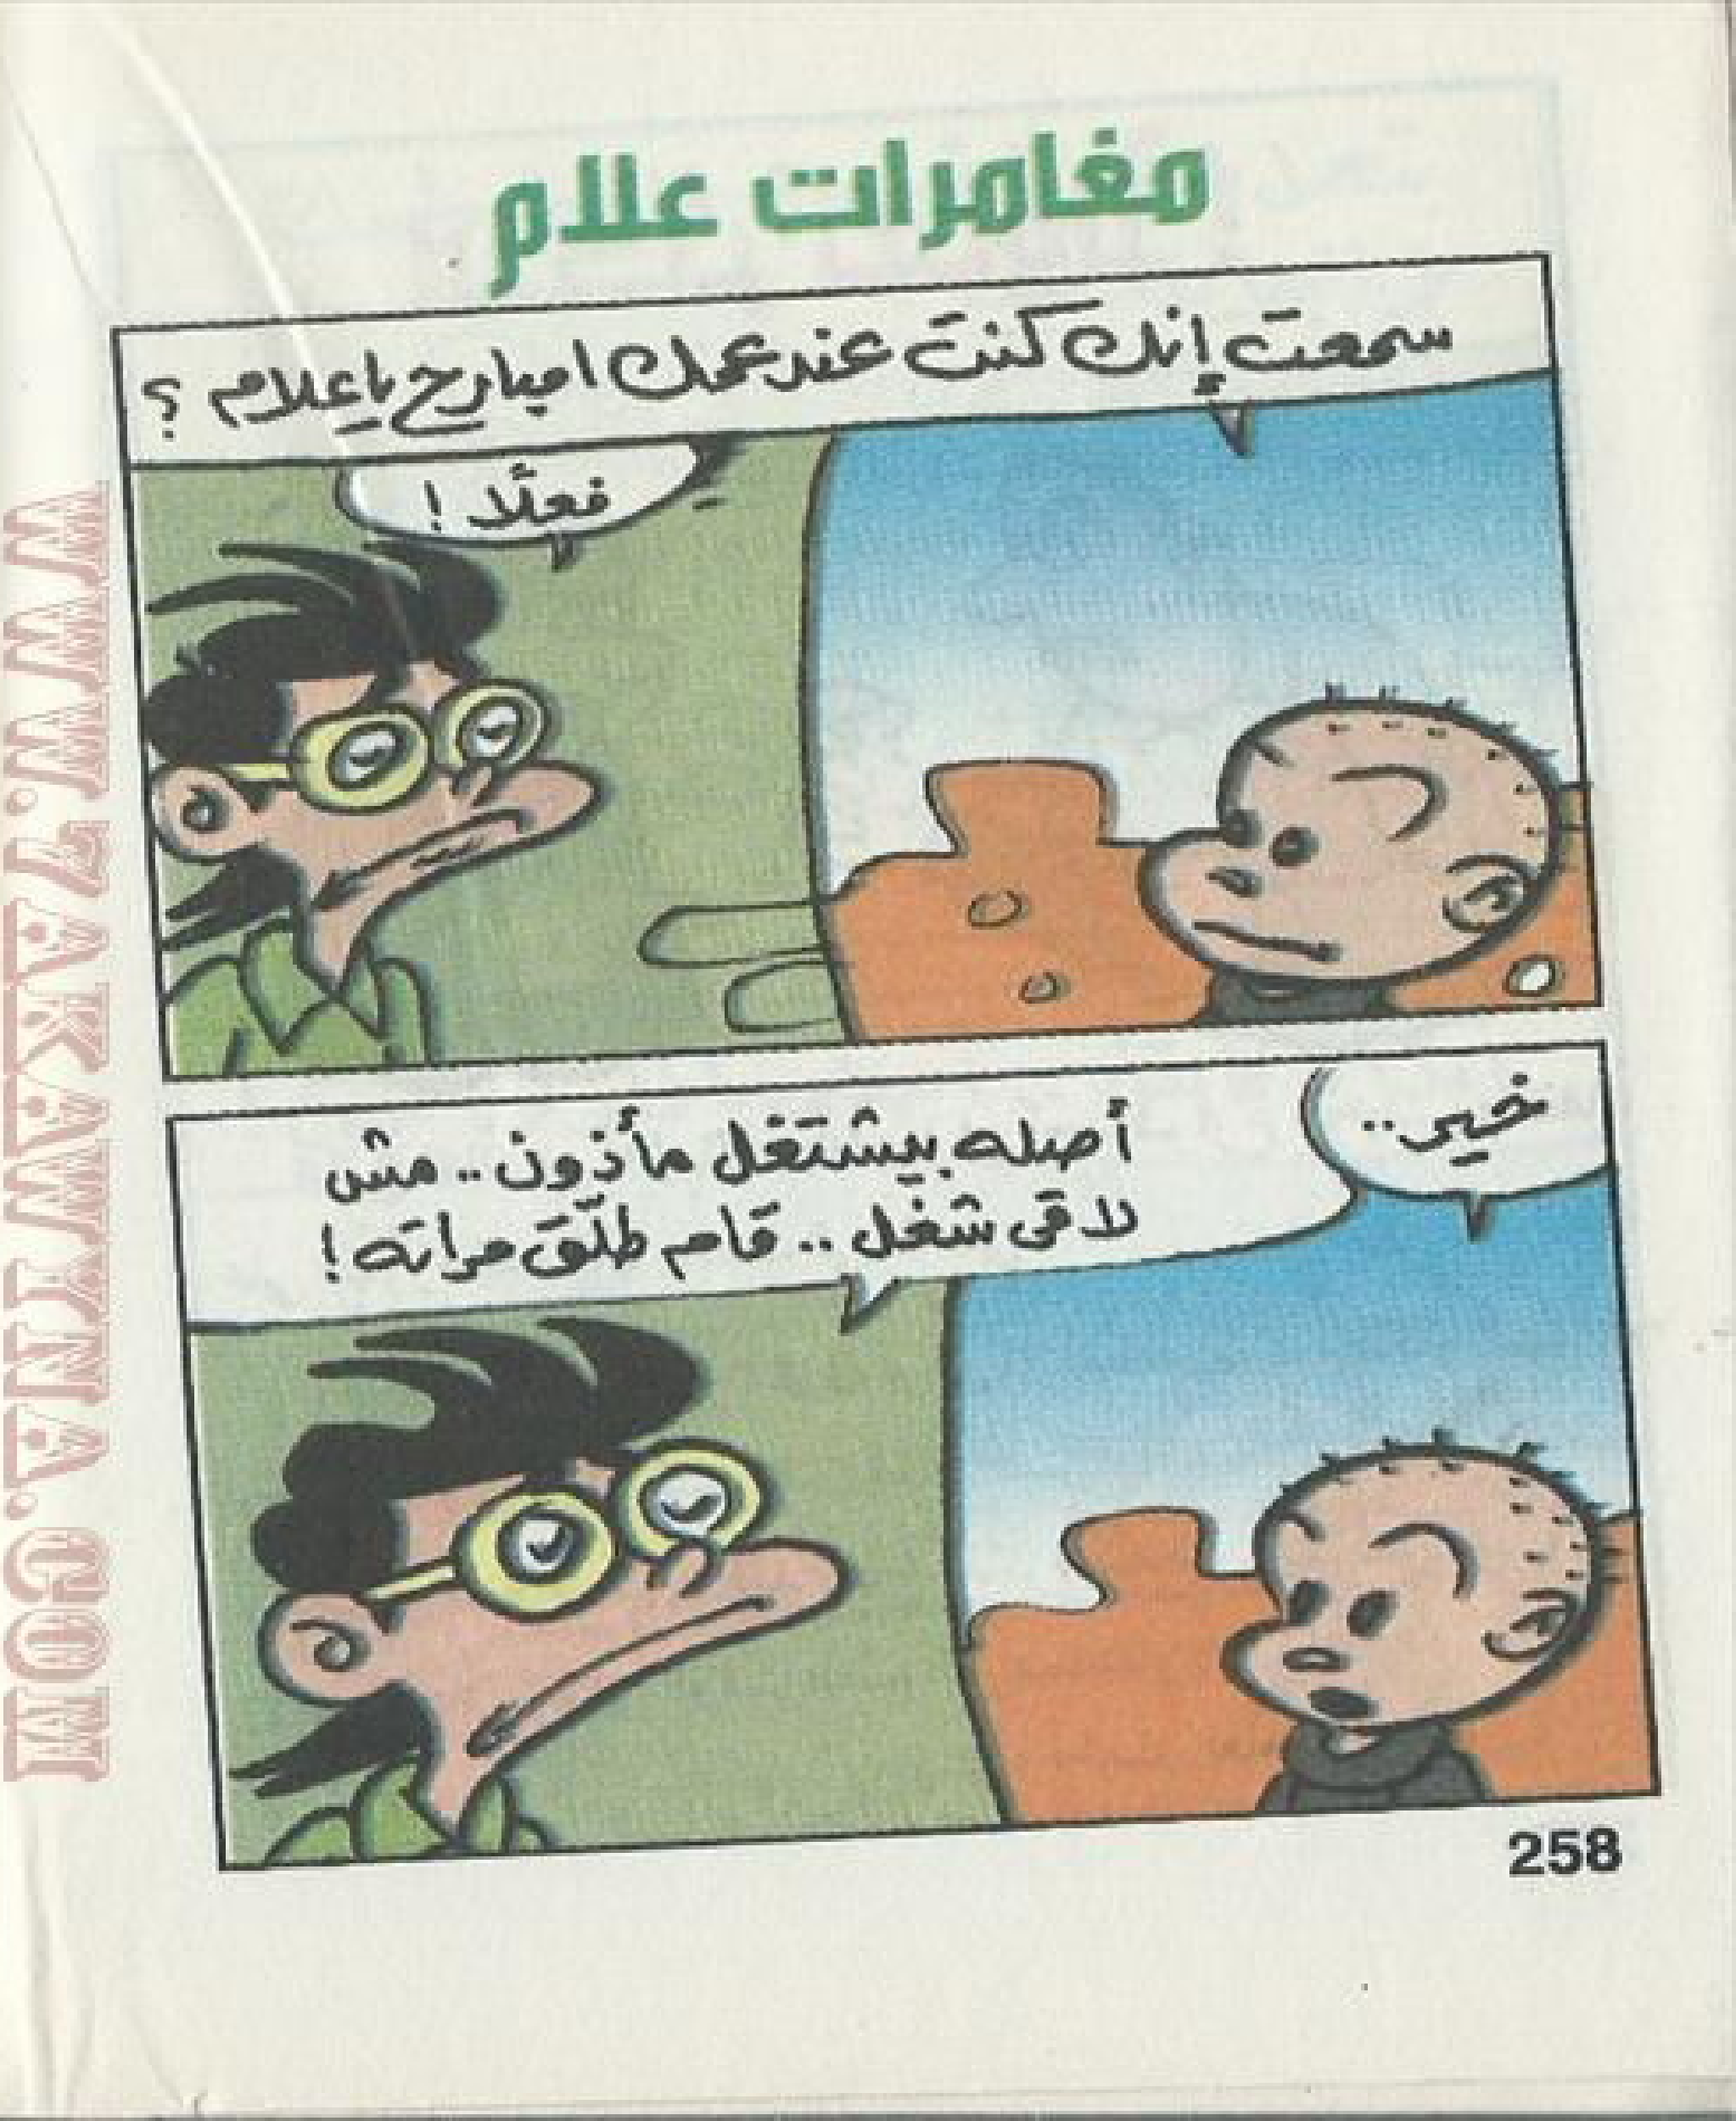 مغامرات علام
سمعت إنك كنت عند عمك امبارح يا علام ؟
فعلًا !
خير..
أصله بيشتغل مأذون.. مش
لاقى شغل.. قام طلّق مراته !
258
WWW.7AKAWINA.COM